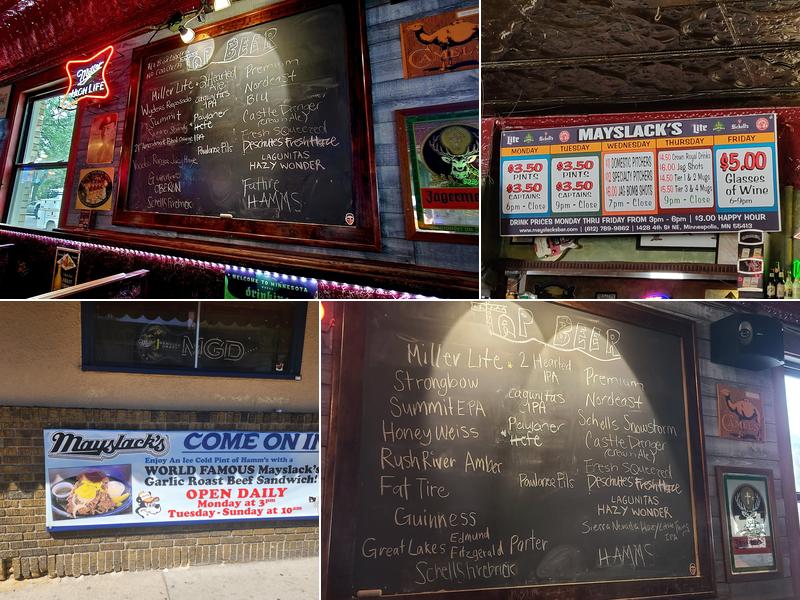 TAP BEER
Miller Lite
2 Hearted
Ale
Premium
Nordeast
Lagunitas
IPA
BLU
Summit
Castle Danger
Cream Ale
Fresh Squeezed
Deschutes Fresh Haze
Pawlowa Pils
LAGUNITAS
HAZY WONDER
Guinness
OBERON
Fattire
HAMMS
Miller
HIGH LIFE
CAMEL
Jägermeister
WELCOME TO MINNESOTA
Lite
Schell's
MAYSLACK'S
Lite
Schell's
MONDAY
TUESDAY
WEDNESDAY
THURSDAY
FRIDAY
$3.50
PINTS
$3.50
CAPTAINS
6pm - Close
$3.50
PINTS
$3.50
CAPTAINS
9pm - Close
DOMESTIC PITCHERS
SPECIALTY PITCHERS
JAG BOMB SHOTS
7pm - Close
$4.50 Crown Royal Drinks
$6.00 Jag Shots
$4.50 Tier 1 & 2 Mugs
$5.50 Tier 3 & 4 Mugs
9pm - Close
$5.00
Glasses
of Wine
6-9pm
DRINK PRICES MONDAY THRU FRIDAY FROM 3pm - 6pm | $3.00 HAPPY HOUR
www.mayslacksbar.com | (612) 789-9862 | 1428 4th St NE, Minneapolis, MN 55413
MGD
Mayslack's COME ON IN
Enjoy An Ice Cold Pint of Hamm's with a
WORLD FAMOUS Mayslack's
Garlic Roast Beef Sandwich!
OPEN DAILY
Monday at 3pm
Tuesday - Sunday at 10am
TAP BEER
Miller Lite
Strongbow
Summit EPA
Honey Weiss
Rush River Amber
Fat Tire
Guinness
Great Lakes Edmund Fitzgerald Porter
Schells firebrick
2 Hearted
IPA
Lagunitas
IPA
Pawlowa Pils
Premium
Nordeast
Schells Snowstorm
Castle Danger
Cream Ale
Fresh Squeezed
Deschutes Fresh Haze
LAGUNITAS
HAZY WONDER
Sierra Nevada Hazy Little Thing
IPA
HAMMS
CAMEL